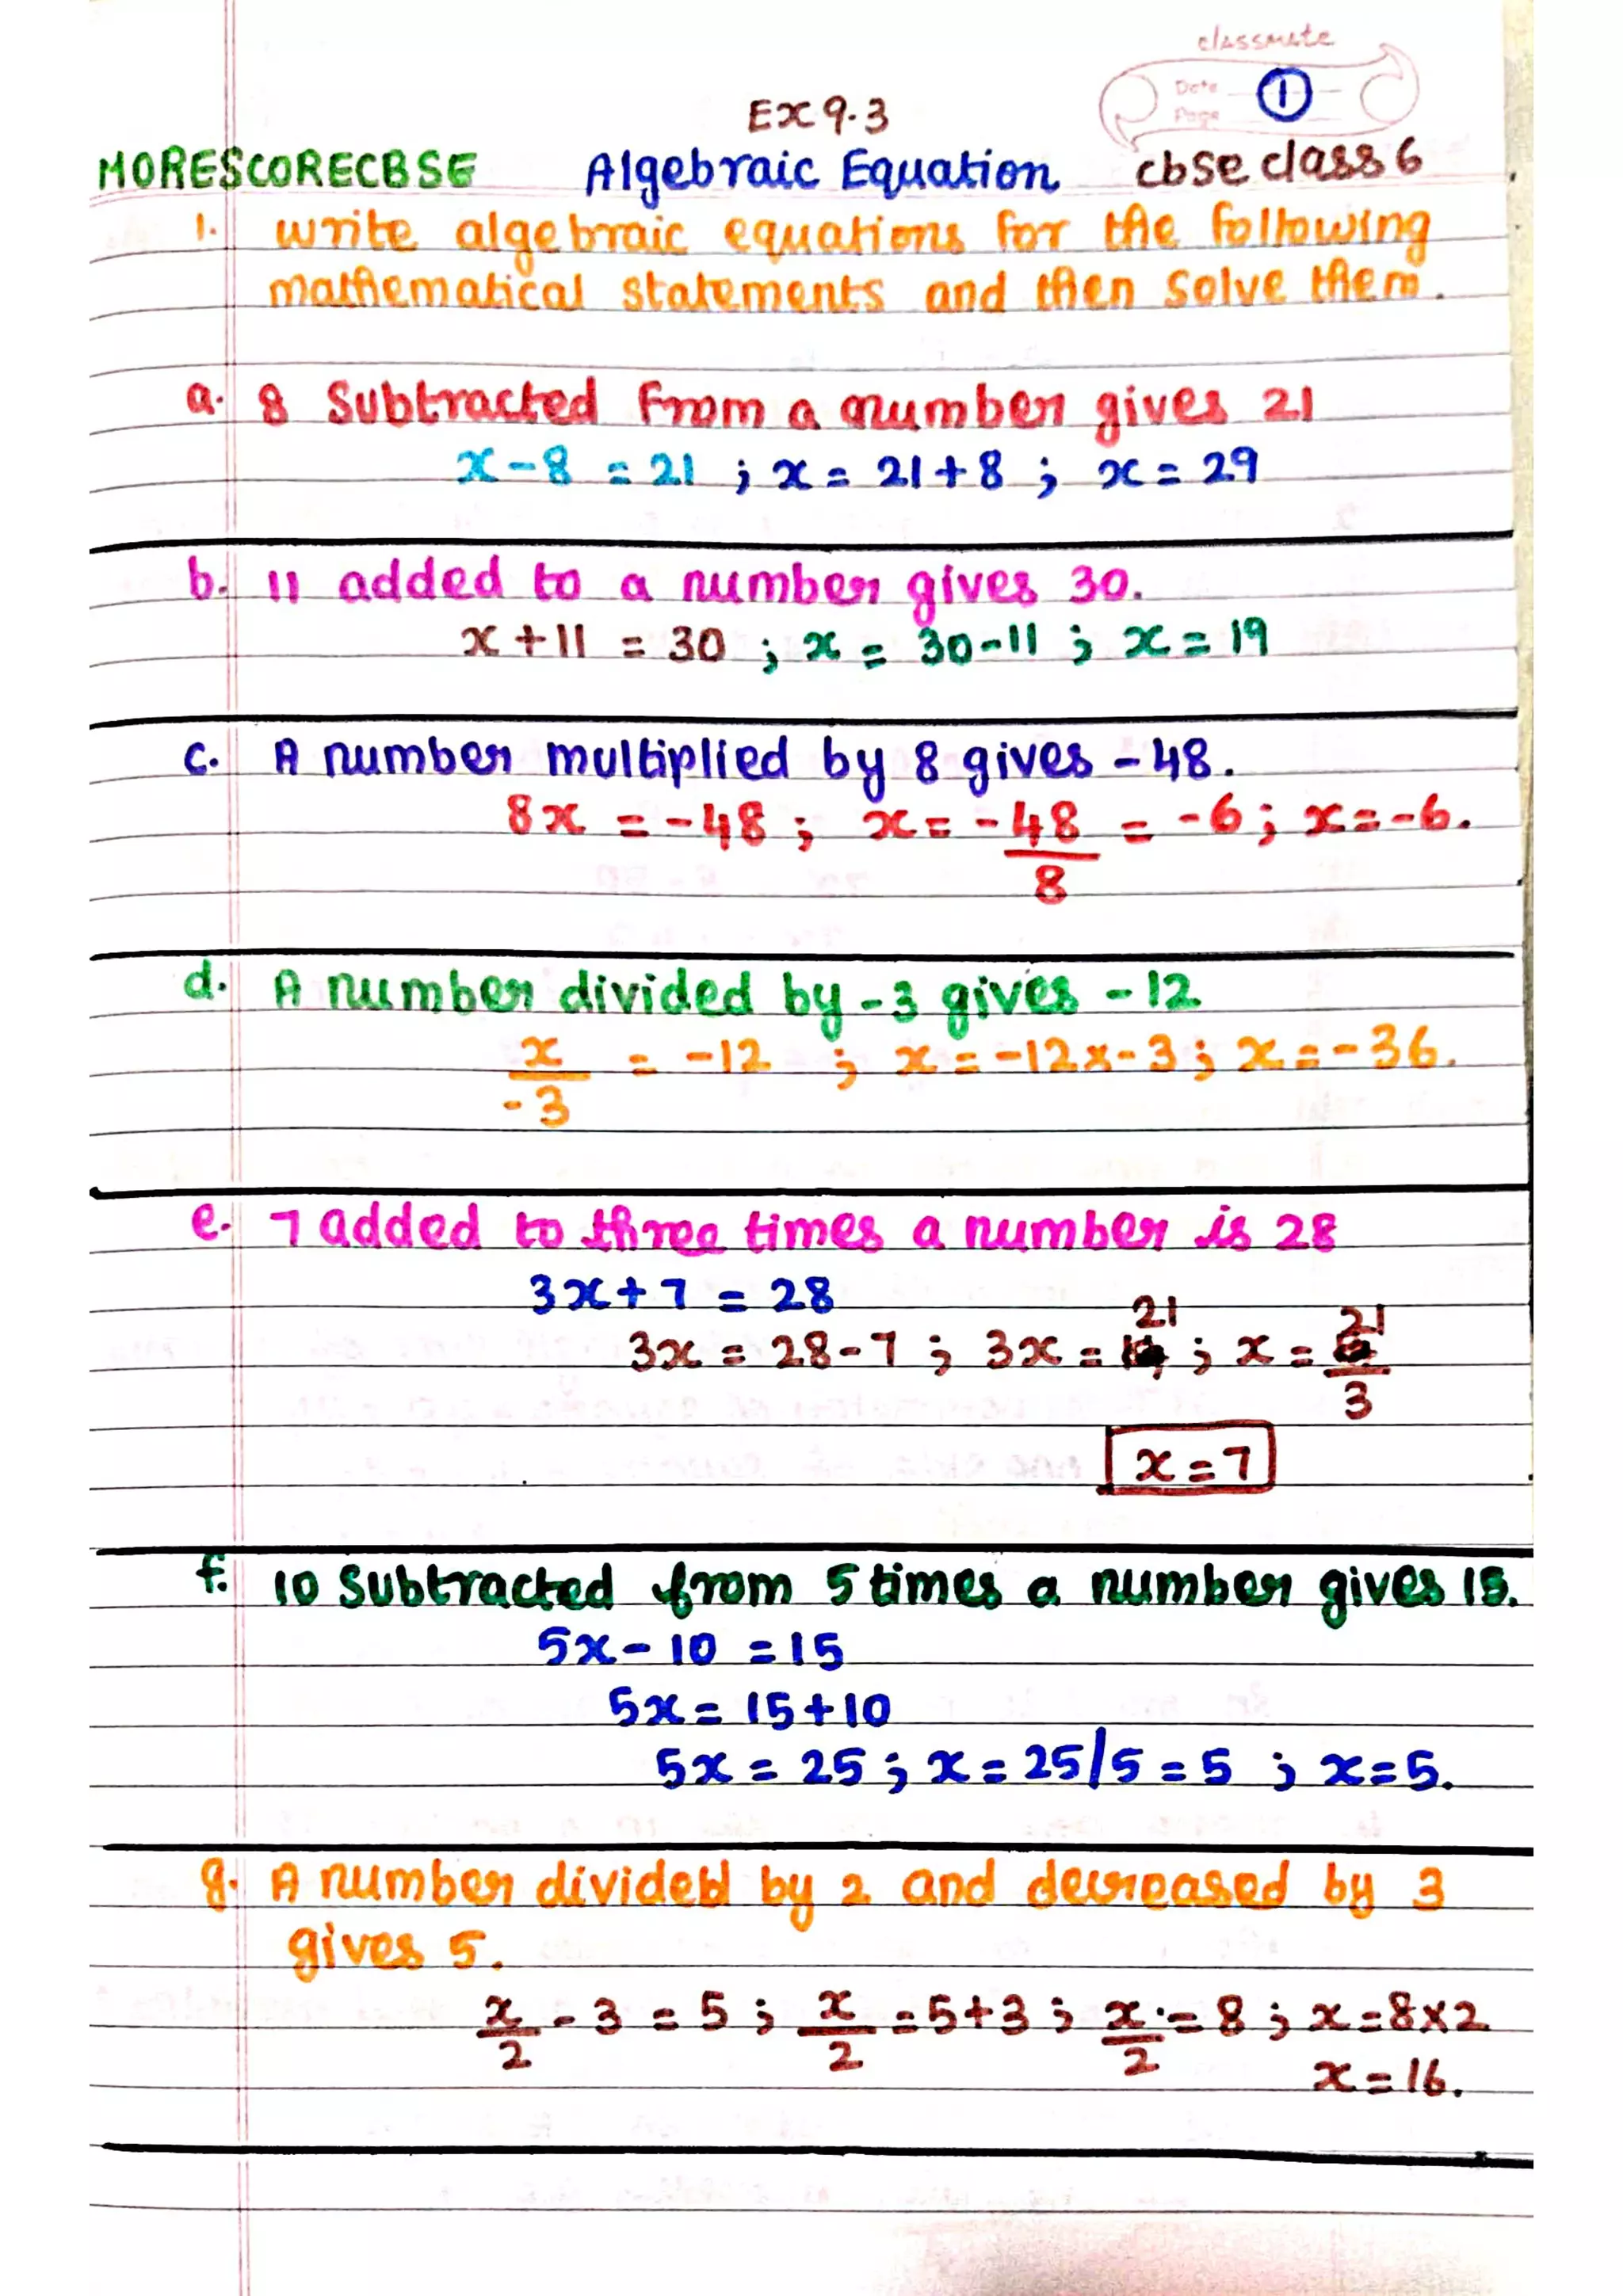 classmate
Date
Page
1
Ex 9.3
MORESCORECBSE Algebraic Equation cbse class 6
1. write algebraic equations for the following
mathematical statements and then solve them.
a. 8 Subtracted from a number gives 21
x - 8 = 21 ; x = 21 + 8 ; x = 29
b. 11 added to a number gives 30.
x + 11 = 30 ; x = 30 - 11 ; x = 19
c. A number multiplied by 8 gives - 48.
8x = - 48 ; x = - 48/8 = - 6 ; x = - 6.
d. A number divided by - 3 gives - 12
x/-3 = - 12 ; x = - 12 x - 3 ; x = - 36.
e. 7 added to three times a number is 28
3x + 7 = 28
3x = 28 - 7 ; 3x = 21 ; x = 21/3
x = 7
f. 10 Subtracted from 5 times a number gives 15.
5x - 10 = 15
5x = 15 + 10
5x = 25 ; x = 25/5 = 5 ; x = 5.
g. A number divided by 2 and decreased by 3
gives 5.
x/2 - 3 = 5 ; x/2 = 5 + 3 ; x/2 = 8 ; x = 8 x 2
x = 16.